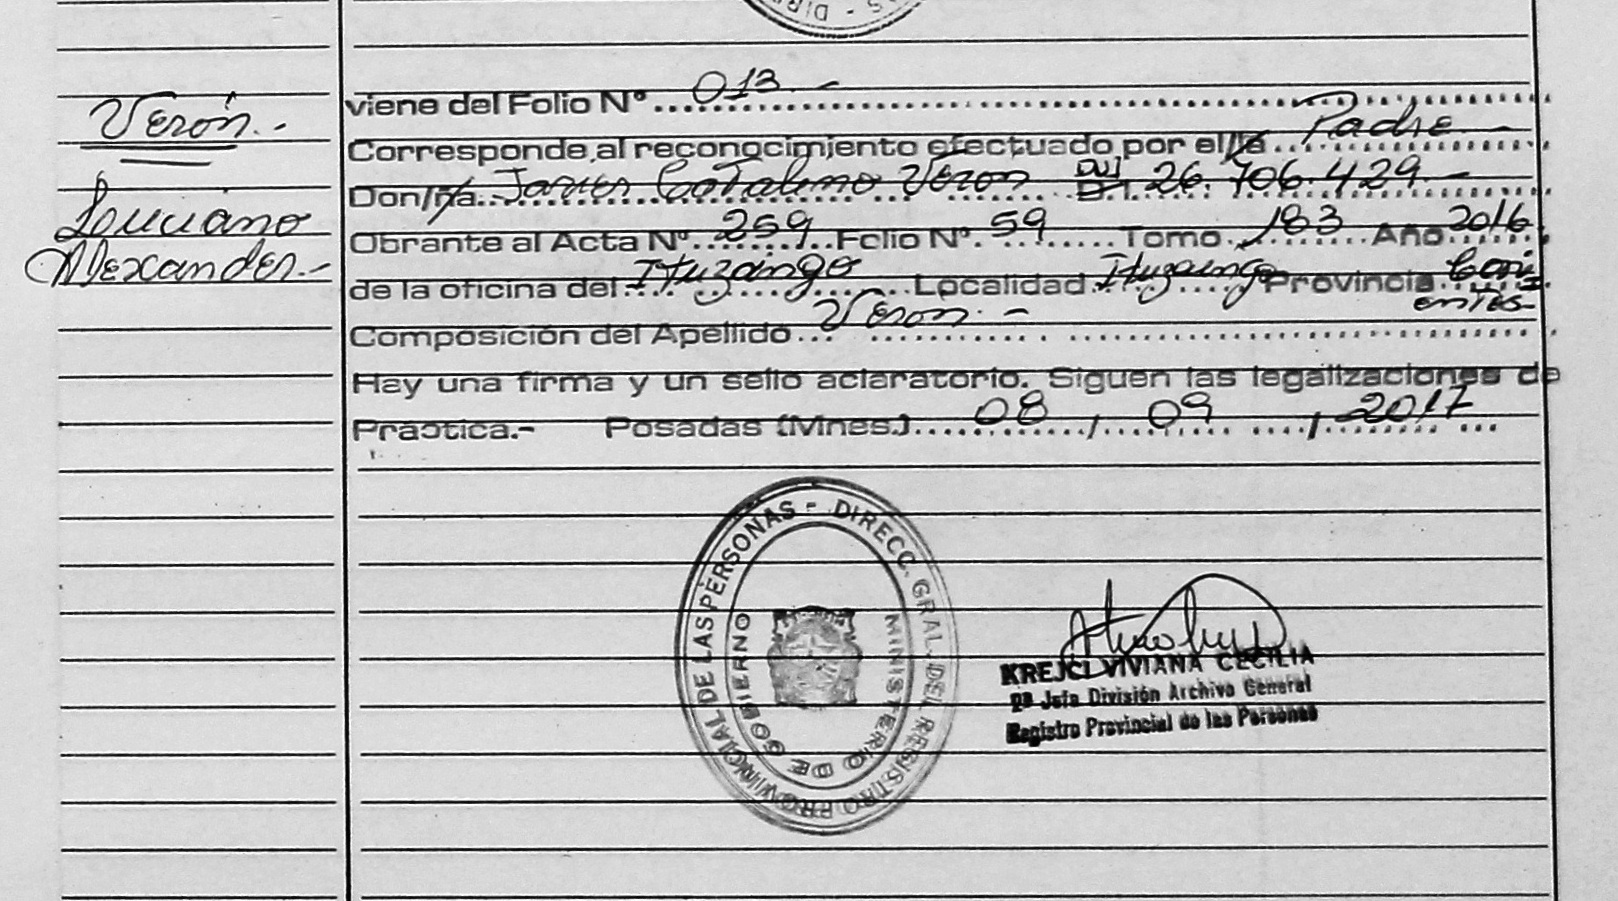 DIRE
viene del Folio Nº...013.-
Verón.-
Corresponde al reconocimiento efectuado por el/la...Padre.-
Don/ña...Javier Catalino Verón DNI D.I. 26.706.429.-
Luciano
Obrante al Acta Nº...259...Folio Nº...59...Tomo...183...Año...2016
Alexander.-
de la oficina del...Ituzaingo...Localidad...Ituzaingo Provincia...Corri
entes-
Composición del Apellido...Verón.-
Hay una firma y un sello aclaratorio. Siguen las legalizaciones de
Práctica.- Posadas (Mnes.)...08.../...09.../...2017...
DIRECC. GRAL. DEL REGISTRO PROVINCIAL DE LAS PERSONAS -
MINISTERIO DE GOBIERNO
KREJCI VIVIANA CECILIA
2ª Jefa División Archivo General
Registro Provincial de las Personas